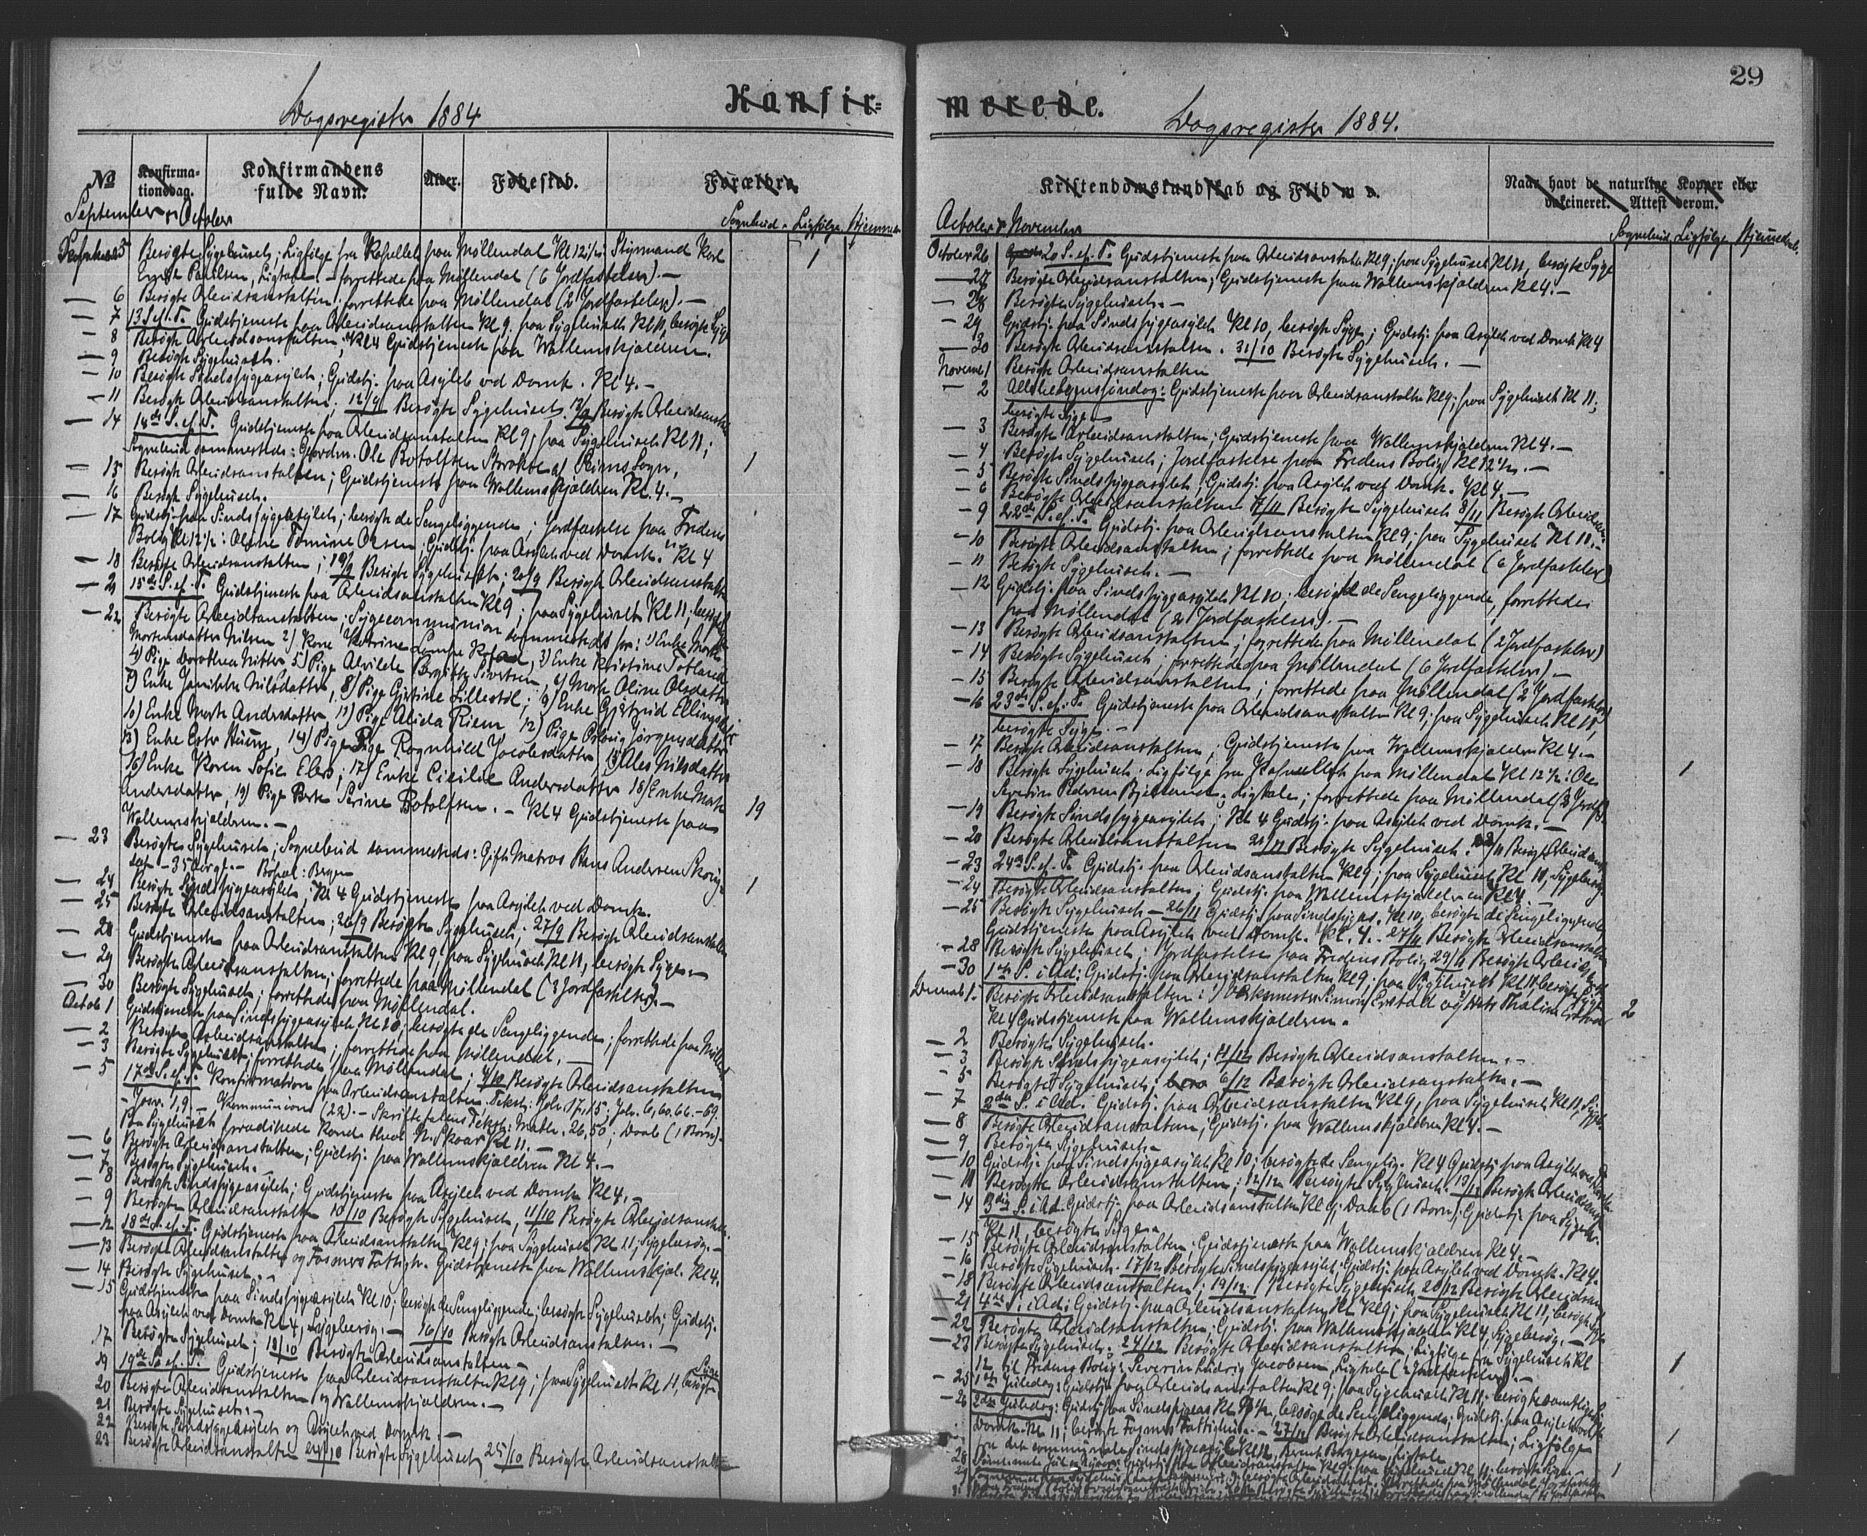 29
Konfir-
Dagsregister 1884
№
Konfirma-
tionsdag.
Konfirmandens
fulde Navn.
Alder.
Fødested.
Forældre
September og October
Sognebud - Ligfølge - Hjemme
September 5 Besøgte Sygehuset; Ligfølge fra Kapellet paa Møllendal Kl 12½: Styrmand Karl
Paulsen, Ligtale - forrettede paa Møllendal (6 Jordfæstelser). —
1
— 6 Besøgte Arbeidsanstalten; forrettede paa Møllendal (2 Jordfæstelser). —
— 7 13 S. ef. T. Gudstjeneste paa Arbeidsanstalten Kl 9. paa Sygehuset Kl 11, besøgte Syge
— 8 Besøgte Arbeidsanstalten; Kl 4 Gudstjeneste paa Wallemskjældren.
— 9 Besøgte Sygehuset.
— 10 Besøgte Sindssygeasylet; Gudstj. paa Asylet ved Domk. Kl 4. —
— 11 Besøgte Arbeidsanstalten. 12/9 Besøgte Sygehuset. 13/9 Besøgte Arbeidsanstalten
— 14 14de S. ef. T. Gudstjeneste paa Arbeidsanstalten Kl 9; paa Sygehuset Kl 11;
Sognebud sammesteds: Ole Botolfsen af Sogn,
1
— 15 Besøgte Arbeidsanstalten; Gudstjeneste paa Wallemskjældren Kl. 4. —
— 16 Besøgte Sygehuset.
— 17 Gudstj. paa Sindssygeasylet; besøgte de Sengeliggende; Jordfæstelse paa Fredens
Bolig Kl 12½: Olsen; Gudstj. paa Asylet ved Domk. Kl 4
— 18 Besøgte Arbeidsanstalten; 19/9 Besøgte Sygehuset; 20/9 Besøgte Arbeidsanstalten
— 21 15de S. ef. T. Gudstjeneste paa Arbeidsanstalten Kl 9; paa Sygehuset Kl 11; besøgte
— 22 Besøgte Arbeidsanstalten; Sygecommunion sammesteds for: 1) Enke
Mortensdatter Nilsen 2) Kone Katrine 3) Enke Kristine
4) Pige Dorothea Nitter 5) Pige Alvilde Birgitte Sivertsen, 6) Oline Olsdatter
7) Enke Jannikke Nilsdatter, 8) Pige Gjertine Lillestøl; 9) Enke Gjertrud Ellingsd.
10) Enke Marte Andersdatter 11) Pige Alida Riem 12) Pige Solveig Jørgensdatter
13) Enke 14) Pige Ragnhild Jacobsdatter 15) Nilsdatter
16) Enke Karen Sofie 17) Enke Cicilie Andersdatter 18) Enke Marte
Andersdatter, 19) Pige Serine Botolfsen. — Kl 4 Gudstjeneste paa
Wallemskjældren. —
19
— 23 Besøgte Sygehuset; Sognebud sammesteds: Gift Matros Hans Andersen
35 Bopæl: Bergen
1
— 24 Besøgte Sindssygeasylet, Kl 4 Gudstjeneste paa Asylet ved Domk.
— 25 Besøgte Arbeidsanstalten; 26/9 Besøgte Sygehuset. 27/9 Besøgte Arbeidsanstalten
— 28 Gudstjeneste paa Arbeidsanstalten Kl 9; paa Sygehuset Kl 11, besøgte Syge. —
— 29 Besøgte Arbeidsanstalten; forrettede paa Møllendal (3 Jordfæstelser). —
— 30 Besøgte Sygehuset; forrettede paa Møllendal.
Octob 1 Gudstjeneste paa Sindssygeasylet Kl 10; besøgte de Sengeliggende; forrettede paa
— 2 Besøgte Arbeidsanstalten; forrettede paa Møllendal. —
— 3 Besøgte Sygehuset; forrettede paa Møllendal; 4/10 Besøgte Arbeidsanstalten
— 5 17de S. ef. T. Konfirmation paa Arbeidsanstalten. Tekst: Joh. 17,15; Joh. 6, 60.66-69.
- Josv. 1,9. — Kommunion (22). — Skriftetalens Tekst: Matth. 26,50; Daab (1 Barn).
Paa Sygehuset prædikede Kand. theol. N. Skaar Kl 11. —
— 6 Besøgte Arbeidsanstalten; Gudstj. paa Wallemskjældren Kl 4. —
— 7 Besøgte Sygehuset. —
— 8 Besøgte Sindssygeasylet; Gudstjeneste paa Asylet ved Domk. Kl 4. —
— 9 Besøgte Arbeidsanstalten 10/10 Besøgte Sygehuset, 11/10 Besøgte Arbeidsanstalten.
— 12 18de S. ef. T. Gudstjeneste paa Arbeidsanstalten Kl 9; paa Sygehuset Kl 11; Sygebesøg. —
— 13 Besøgte Arbeidsanstalten og Fasmers Fattigh. Gudstjeneste paa Wallemskjæl. Kl 4.
— 14 Besøgte Sygehuset. —
— 15 Gudstjeneste paa Sindssygeasylet Kl 10; besøgte de Sengeliggende; besøgte Sygehuset; Gudstj.
paa Asylet ved Domk. Kl 4, Sygebesøg. — 16/10 Besøgte Arbeidsanstalten. —
17 Besøgte Sygehuset; 18/10 Besøgte Arbeidsanstalten —
19 19de S. ef. T. Gudstjeneste paa Arbeidsanstalten Kl 9; paa Sygehuset Kl 11, besøgte Syge
20 Besøgte Arbeidsanstalten og Wallemskjældren. —
21 Besøgte Sygehuset. —
22 Besøgte Sindssygeasylet og Asylet ved Domk. —
23 Besøgte Arbeidsanstalten 24/10 Besøgte Sygehuset 25/10 Besøgte Arbeidsanstalten
merede.
Dagsregister 1884.
Kristendomskundskab og Flid m. v.
Naar havt de naturlige Kopper eller
vakcineret. Attest derom.
October & November
Sognebud Ligfølge Hjemmedaab.
October 26 20 S. ef. T. Gudstjeneste paa Arbeidsanstalten Kl 9; paa Sygehuset Kl 11, besøgte Syge
— 27 Besøgte Arbeidsanstalten; Gudstjeneste paa Wallemskjældren Kl 4. —
— 28 Besøgte Sygehuset. —
— 29 Gudstj. paa Sindssygeasylet Kl 10, besøgte Syge; Gudstj. paa Asylet ved Domk Kl 4
— 30 Besøgte Arbeidsanstalten. 31/10 Besøgte Sygehuset. —
Novemb 1 Besøgte Arbeidsanstalten
— 2 Allehelgenssøndag: Gudstjeneste paa Arbeidsanstalten Kl 9; paa Sygehuset Kl 11;
besøgte Syge —
— 3 Besøgte Arbeidsanstalten; Gudstjeneste paa Wallemskjældren Kl 4. —
— 4 Besøgte Sygehuset; Jordfæstelse paa Fredens Bolig Kl 12½. —
— 5 Besøgte Sindssygeasylet; Gudstj. paa Asylet ved Domk. Kl 4. —
— 6 Besøgte Arbeidsanstalten 7/11 Besøgte Sygehuset 8/11 Besøgte Arbeidsan.
— 9 22de S. ef. T. Gudstj. paa Arbeidsanstalten Kl 9; paa Sygehuset Kl 11. —
— 10 Besøgte Arbeidsanstalten; forrettede paa Møllendal (6 Jordfæstelser)
— 11 Besøgte Sygehuset. —
— 12 Gudstj. paa Sindssygeasylet Kl 10; besøgte de Sengeliggende, forrettede
paa Møllendal (2 Jordfæstelser). —
— 13 Besøgte Arbeidsanstalten; forrettede paa Møllendal (2 Jordfæstelser)
— 14 Besøgte Sygehuset; forrettede paa Møllendal (6 Jordfæstelser). —
— 15 Besøgte Arbeidsanstalten; forrettede paa Møllendal (2 Jordfæstelser)
— 16 23de S. ef. T. Gudstjeneste paa Arbeidsanstalten Kl 9; paa Sygehuset Kl 11,
besøgte Syge. —
— 17 Besøgte Arbeidsanstalten; Gudstjeneste paa Wallemskjældren Kl 4. —
— 18 Besøgte Sygehuset. Ligfølge fra Kapellet paa Møllendal Kl 12½: Ole
Severin Pedersen Ligtale; forrettede paa Møllendal (3 Jordf.)
1
— 19 Besøgte Sindssygeasylet; Kl 4 Gudstj. paa Asylet ved Domk. —
— 20 Besøgte Arbeidsanstalten 21/11 Besøgte Sygehuset. 22/11 Besøgte Arbeidsans.
— 23 24de S. ef. T. Gudstj. paa Arbeidsanstalten Kl 9; paa Sygehuset Kl 11, Sygebesøg
— 24 Besøgte Arbeidsanstalten; Gudstj. paa Wallemskjældren Kl 4
— 25 Besøgte Sygehuset — 26/11 Gudstj. paa Sindssygeas. Kl 10; besøgte de Sengeliggende
Gudstjeneste paa Asylet ved Domk. Kl. 4. — 27/11 Besøgte Arbeidsanstalten
— 28 Besøgte Sygehuset; Jordfæstelse paa Fredens Bolig 29/11 Besøgte Arbeids.
— 30 1ste S. i Ad: Gudstj. paa Arbeidsanstalten Kl 9; paa Sygehuset Kl 11. besøgte Syge
Decemb 1. Besøgte Arbeidsanstalten: 1) Værksmester Simon Erstad og Thalie Erstad
Kl 4 Gudstjeneste paa Wallemskjældren.
2
— 2 Besøgte Sygehuset.
— 3 Besøgte Sindssygeasylet; 4/12 Besøgte Arbeidsanstalten. —
— 5 Besøgte Sygehuset; 6/12 Besøgte Arbeidsanstalten. —
— 7 2den S. i Ad. Gudstj. paa Arbeidsanstalten Kl 9, paa Sygehuset Kl 11, Sygeb.
— 8 Besøgte Arbeidsanstalten; Gudstj. paa Wallemskjældren Kl 4. —
— 9 Besøgte Sygehuset —
— 10 Gudstj. paa Sindssygeasylet Kl 10; besøgte de Sengelig. Kl 4 Gudstj. paa Asylet ved Domk.
— 11 Besøgte Arbeidsanstalten; 12/12 Besøgte Sygehuset. 13/12 Besøgte Arbeidsanst.
— 14 3die S. i Ad. Gudstj. paa Arbeidsanstalten Kl 9; Daab (1 Barn); Gudstj. paa Sygehus.
Kl 11, besøgte Syge.
— 15 Besøgte Arbeidsanstalten; Gudstjeneste paa Wallemskjældren Kl 4. —
— 16 Besøgte Sygehuset. 17/12 Besøgte Sindssygeasylet; Gudstj. paa Asylet ved Domk. Kl 4.
— 18 Besøgte Arbeidsanstalten; 19/12 Besøgte Sygehuset, 20/12 Besøgte Arbeidsans
— 21 4de S. i Ad: Gudstj. paa Arbeidsanstalten Kl 9; paa Sygehuset Kl 11, besøgte Syge
— 22 Besøgte Arbeidsanstalten; Gudstj. paa Wallemskjælderen Kl 4, Sygebesøg. —
— 23 Besøgte Sygehuset. 24/12 Besøgte Arbeidsanstalten; Ligfølge fra Sygehuset Kl
12 til Fredens Bolig: Severin Ludvig Jacobsen, Ligtale (2 Jordfæstelser). —
1
— 25 1ste Juledag: Gudstj. paa Arbeidsanstalten Kl 9; paa Sygehuset Kl 11; besøgte samtlige
— 26 2den Juledag: Gudstj. paa Sindssygeas Kl 9½, besøgte de Sengeliggende; Gudstj. paa Asylet ved
Domk. Kl 11; besøgte Fasmers Fattighuse. — 27/12 Besøgte Arbeidsanstalten; Ligfølge
fra det communale Sindssygeasyl Kl 12, Ligtale
1
28
1